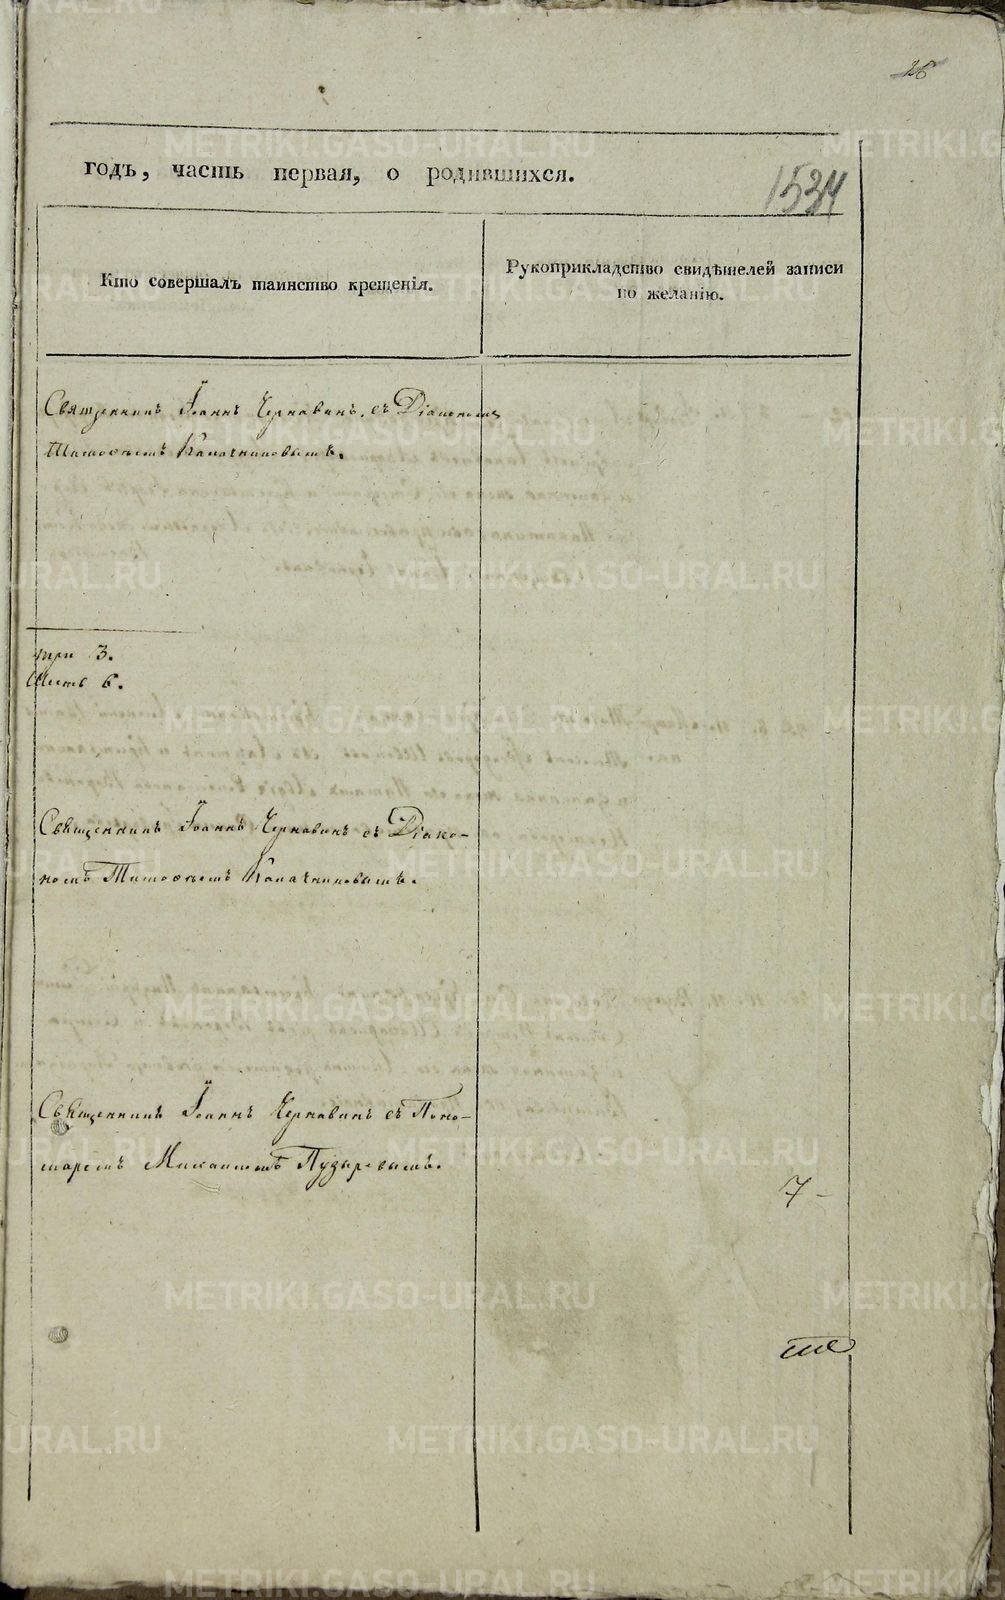 26
годъ, часть первая, о родившихся.
1534
Кто совершалъ таинство крещенія.
Рукоприкладство свидѣтелей записи
по желанію.
Священникъ Іоаннъ Чернавинъ, съ Діакономъ
Тимоѳеемъ Калачниковымъ.
три 3.
Шесть 6.
Священникъ Іоаннъ Чернавинъ съ Діако-
номъ Тимоѳеемъ Калачниковымъ.
Священникъ Іоаннъ Чернавинъ съ Поно-
маремъ Михаиломъ Пузыревымъ.
7
METRIKI.GASO-URAL.RU